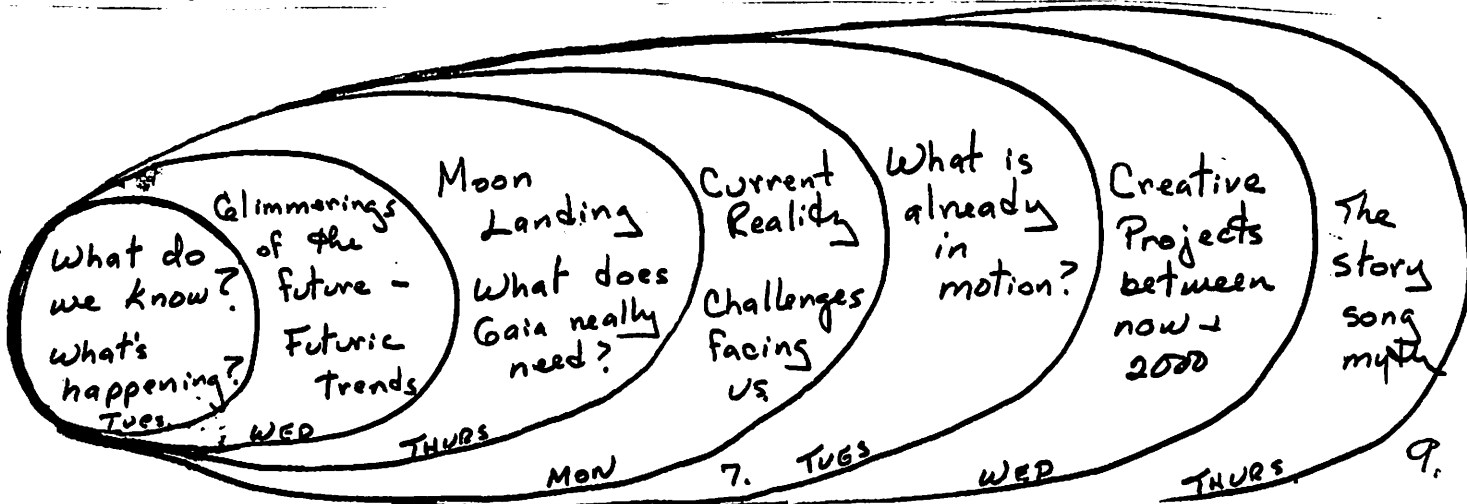 What do
we know?
What's
happening?
Tues.
Glimmerings
of the
future -
Futuric
Trends
WED
Moon
Landing
What does
Gaia really
need?
THURS
Current
Reality
Challenges
facing
us
MON
7.
What is
already
in
motion?
TUES
Creative
Projects
between
now +
2000
WED
The
story
song
myth
THURS
9.